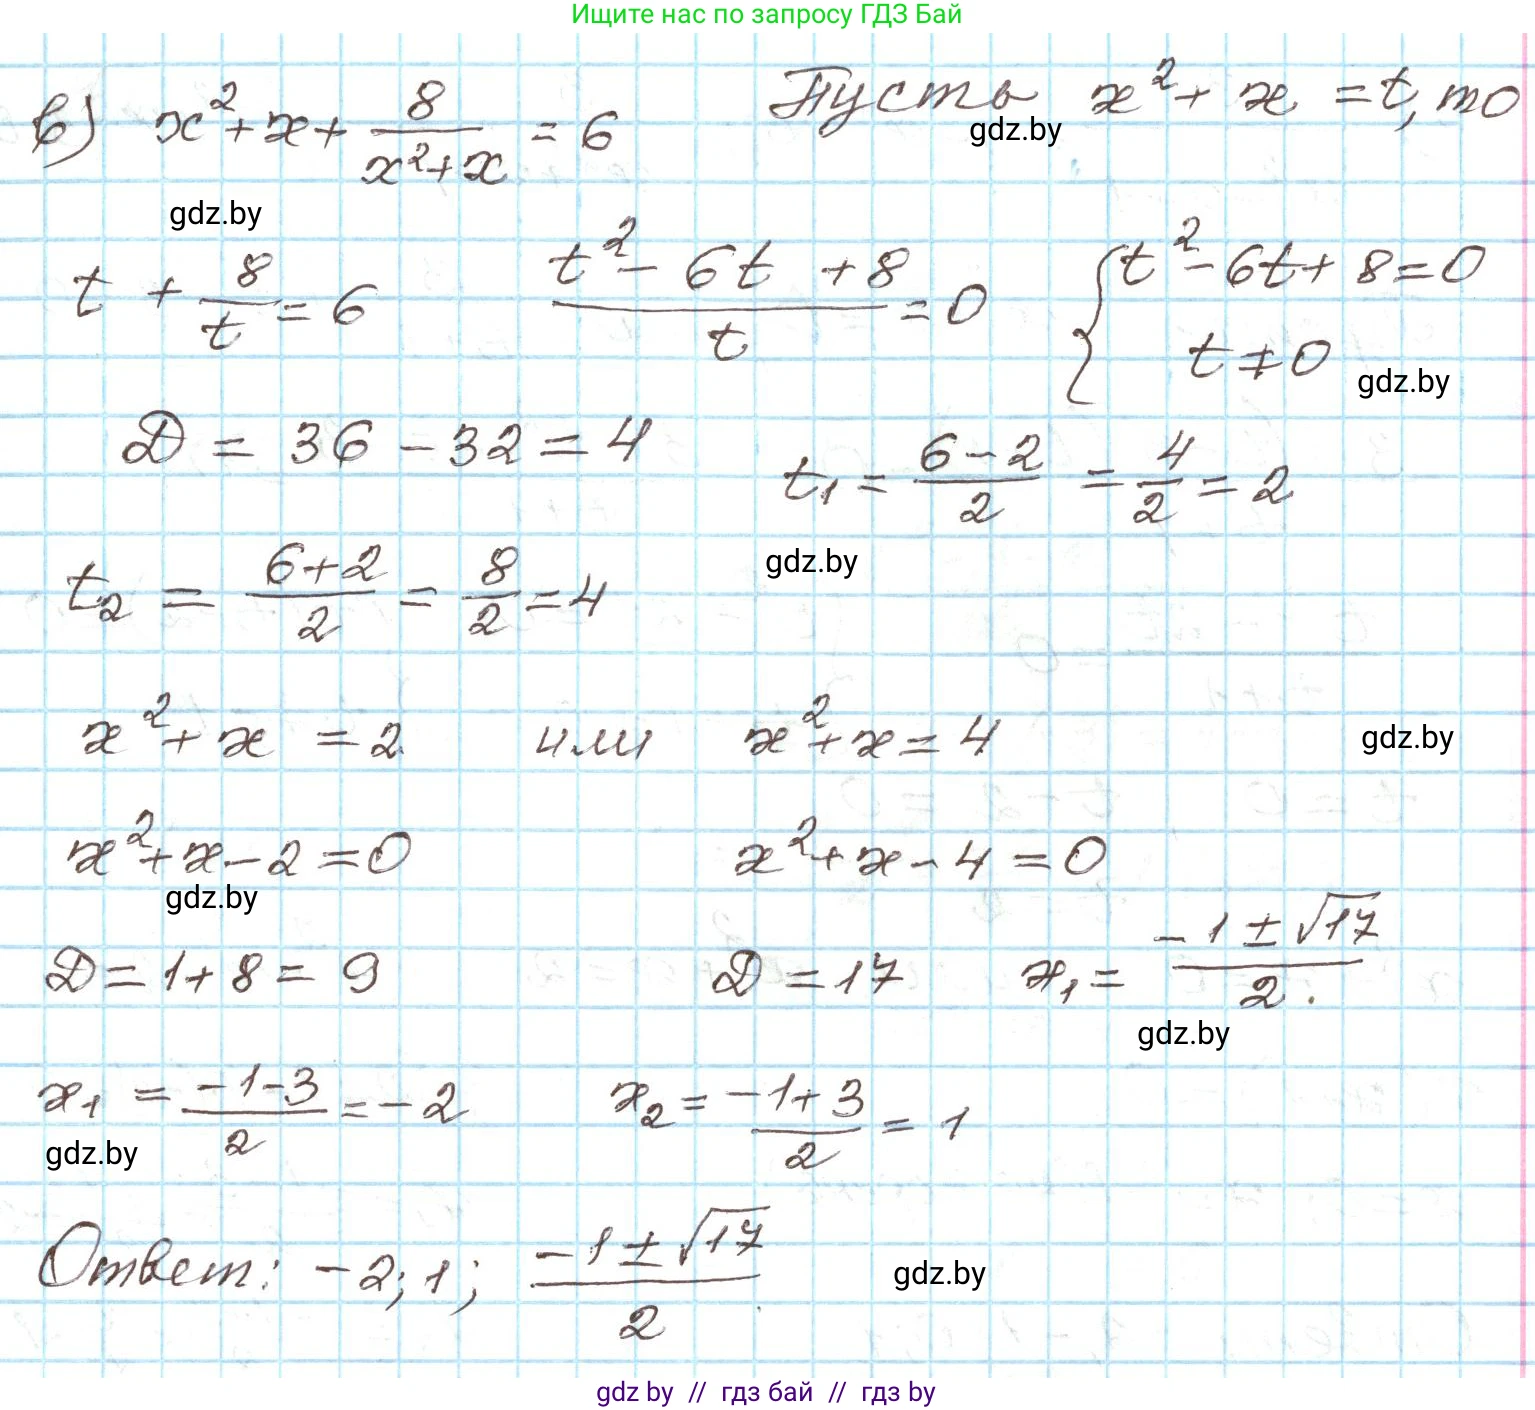 Ищите нас по запросу ГДЗ Бай
в) x² + x + 8/(x² + x) = 6 Пусть x² + x = t, то
gdz.by
gdz.by
t + 8/t = 6 (t² - 6t + 8)/t = 0 { t² - 6t + 8 = 0
t ≠ 0
gdz.by
D = 36 - 32 = 4 t₁ = (6 - 2)/2 = 4/2 = 2
gdz.by
t₂ = (6 + 2)/2 = 8/2 = 4
x² + x = 2 или x² + x = 4 gdz.by
x² + x - 2 = 0 x² + x - 4 = 0
gdz.by
D = 1 + 8 = 9 D = 17 x₁ = (-1 ± √17)/2.
gdz.by
x₁ = (-1 - 3)/2 = -2 x₂ = (-1 + 3)/2 = 1
gdz.by
Ответ: -2; 1; (-1 ± √17)/2
gdz.by
gdz by // гдз бай // гдз by